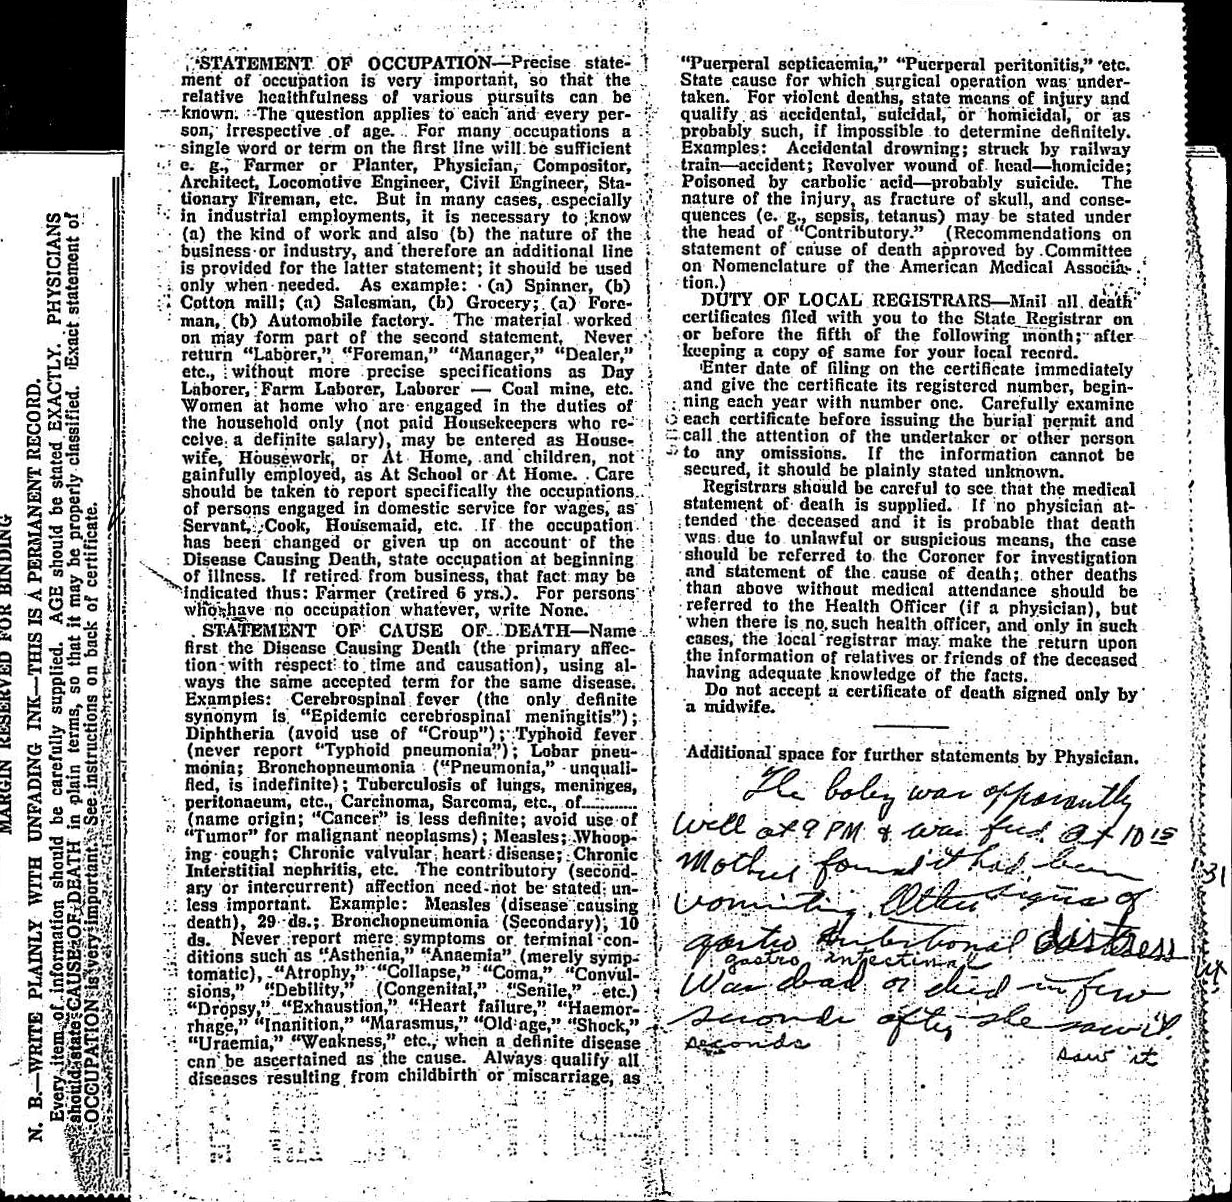 MARGIN RESERVED FOR BINDING
N. B.—WRITE PLAINLY WITH UNFADING INK—THIS IS A PERMANENT RECORD.
Every item of information should be carefully supplied. AGE should be stated EXACTLY. PHYSICIANS
should state CAUSE OF DEATH in plain terms, so that it may be properly classified. Exact statement of
OCCUPATION is very important. See instructions on back of certificate.
STATEMENT OF OCCUPATION—Precise state-
ment of occupation is very important, so that the
relative healthfulness of various pursuits can be
known. The question applies to each and every per-
son, irrespective of age. For many occupations a
single word or term on the first line will be sufficient
e. g., Farmer or Planter, Physician, Compositor,
Architect, Locomotive Engineer, Civil Engineer, Sta-
tionary Fireman, etc. But in many cases, especially
in industrial employments, it is necessary to know
(a) the kind of work and also (b) the nature of the
business or industry, and therefore an additional line
is provided for the latter statement; it should be used
only when needed. As example: (a) Spinner, (b)
Cotton mill; (a) Salesman, (b) Grocery; (a) Fore-
man, (b) Automobile factory. The material worked
on may form part of the second statement. Never
return "Laborer," "Foreman," "Manager," "Dealer,"
etc., without more precise specifications as Day
Laborer, Farm Laborer, Laborer — Coal mine, etc.
Women at home who are engaged in the duties of
the household only (not paid Housekeepers who re-
ceive a definite salary), may be entered as House-
wife, Housework, or At Home, and children, not
gainfully employed, as At School or At Home. Care
should be taken to report specifically the occupations
of persons engaged in domestic service for wages, as
Servant, Cook, Housemaid, etc. If the occupation
has been changed or given up on account of the
Disease Causing Death, state occupation at beginning
of illness. If retired from business, that fact may be
indicated thus: Farmer (retired 6 yrs.). For persons
who have no occupation whatever, write None.
STATEMENT OF CAUSE OF DEATH—Name
first the Disease Causing Death (the primary affec-
tion with respect to time and causation), using al-
ways the same accepted term for the same disease.
Examples: Cerebrospinal fever (the only definite
synonym is "Epidemic cerebrospinal meningitis");
Diphtheria (avoid use of "Croup"); Typhoid fever
(never report "Typhoid pneumonia"); Lobar pneu-
monia; Bronchopneumonia ("Pneumonia," unquali-
fied, is indefinite); Tuberculosis of lungs, meninges,
peritonaeum, etc., Carcinoma, Sarcoma, etc., of..........
(name origin; "Cancer" is less definite; avoid use of
"Tumor" for malignant neoplasms); Measles; Whoop-
ing cough; Chronic valvular heart disease; Chronic
Interstitial nephritis, etc. The contributory (second-
ary or intercurrent) affection need not be stated un-
less important. Example: Measles (disease causing
death), 29 ds.; Bronchopneumonia (Secondary), 10
ds. Never report mere symptoms or terminal con-
ditions such as "Asthenia," "Anaemia" (merely symp-
tomatic), "Atrophy," "Collapse," "Coma," "Convul-
sions," "Debility," (Congenital," "Senile," etc.)
"Dropsy," "Exhaustion," "Heart failure," "Haemor-
rhage," "Inanition," "Marasmus," "Old age," "Shock,"
"Uraemia," "Weakness," etc., when a definite disease
can be ascertained as the cause. Always qualify all
diseases resulting from childbirth or miscarriage, as
"Puerperal septicaemia," "Puerperal peritonitis," etc.
State cause for which surgical operation was under-
taken. For violent deaths, state means of injury and
qualify as accidental, suicidal, or homicidal, or as
probably such, if impossible to determine definitely.
Examples: Accidental drowning; struck by railway
train—accident; Revolver wound of head—homicide;
Poisoned by carbolic acid—probably suicide. The
nature of the injury, as fracture of skull, and conse-
quences (e. g., sepsis, tetanus) may be stated under
the head of "Contributory." (Recommendations on
statement of cause of death approved by Committee
on Nomenclature of the American Medical Associa-
tion.)
DUTY OF LOCAL REGISTRARS—Mail all death
certificates filed with you to the State Registrar on
or before the fifth of the following month; after
keeping a copy of same for your local record.
Enter date of filing on the certificate immediately
and give the certificate its registered number, begin-
ning each year with number one. Carefully examine
each certificate before issuing the burial permit and
call the attention of the undertaker or other person
to any omissions. If the information cannot be
secured, it should be plainly stated unknown.
Registrars should be careful to see that the medical
statement of death is supplied. If no physician at-
tended the deceased and it is probable that death
was due to unlawful or suspicious means, the case
should be referred to the Coroner for investigation
and statement of the cause of death; other deaths
than above without medical attendance should be
referred to the Health Officer (if a physician), but
when there is no such health officer, and only in such
cases, the local registrar may make the return upon
the information of relatives or friends of the deceased
having adequate knowledge of the facts.
Do not accept a certificate of death signed only by
a midwife.
Additional space for further statements by Physician.
The baby was apparently
well at 9 PM & was fed. at 10 15
Mother found it had been
vomiting. Other signs of
gastro intestional distress
gastro intestinal
Was dead or died in few
seconds after she saw it.
seconds
saw it
31